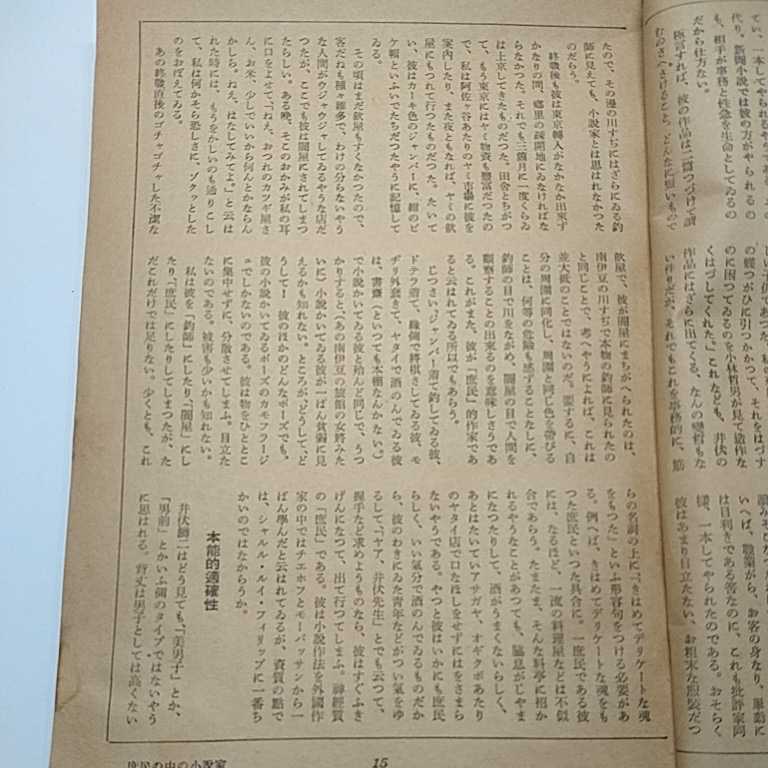 たので、その邊の川すぢにはざらにゐる釣
師に見えても、小説家とは思はれなかつた
のだらう。
終戰後も彼は東京轉入がなかなか出來す
かなりの間、郷里の疎開地にゐなければな
らなかつた。それでも三箇月に一度くらゐ
は上京してきたものだつた。田舎とちがつ
て、もう東京にはヤミ物資も豊富だつたの
で、私は阿佐ヶ谷あたりのヤミ市場に彼を
案内したり、また夜ともなれば、ヤミの飲
屋にもつれて行つたものだつた。たいて
い、彼はカーキ色のジャンパーに、紺のピ
ケ帽といふいでたちだつたやうに記憶して
ゐる。
その頃はまだ飲屋もすくなかつたので、
客だねも種々雑多で、わけの分らないやう
な人間がウジャウジャしてゐるやうな店だ
つたが、ここでも彼は闇屋にされてしまつ
たらしい。ある晩、そこのおかみが私の耳
に口をよせて、「ねえ、おつれのカツギ屋さ
ん、お米、少しでいいから何んとかならん
かしら。ねえ、はなしてみてよ。」と云は
れた時には、もうをかしいのも通りこし
て、私は何かそら恐しさに、ゾクッとした
のをおぼえてゐる。
あの終戰直後のゴチャゴチャした不潔な
飲屋で、彼が闇屋にまちがへられたのは、
南伊豆の川すぢで本物の釣師に見られたの
と同じことで、考へやうによれば、これは
並大抵のことではないのだ。要するに、自
分の周圍に同化し、周圍と同じ色を帶びる
ことは、何等の危險も感することなしに、
釣師の目で川をながめ、闇屋の目で人間を
觀察することの出來るのを意味しさうであ
る。これがまた、彼が「庶民」的作家であ
ると云はれてゐる所以でもあらう。
じつさい、ジャンパー着て釣してゐる彼、
ドテラ着て、縁側で將棋さしてゐる彼、モ
ヂリ外套きて、ヤタイで酒のんでゐる彼
は、書齋(といつても本棚なんかない。)
で小説かいてゐる彼と殆んど同じで、うつ
かりすると、(あの南伊豆の旅館の女將みた
いに)小説かいてゐる彼が一ばん貧弱に見
えるかも知れない。ところが、どうして、ど
うして!彼のほかのどんなポーズでも、
彼の小説かいてゐるポーズのカモフラージ
ュでしかないのである。彼は物をひとこと
に集中せずに、分散させてしまふ。目立た
ないのである。被害も少いかも知れない。
私は彼を「釣師」にしたり、「闇屋」にし
たり、「庶民」にしたりしてしまつたが、た
だこれだけでは足りない。少くとも、これ
らの名詞の上に、「きはめてデリケートな魂
をもつた」といふ形容句をつける必要があ
る。例へば、きはめてデリケートな魂をも
つた庶民といつた具合に。一庶民である彼
には、なるほど、一流の料理屋などは不似
合であらう。たまたま、そんな料亭に招か
れるやうなことがあつても、脇息がじやま
になつたりして、酒がうまくないらしく、
あとはたいていアサガヤ、オギクボあたり
のヤタイ店で口なほしをせずにはをさまら
ないやうである。やつと彼はいかにも庶民
らしく、いい氣分で酒のんでゐるものだか
ら、彼のわきにゐた青年などがつい氣をゆ
るして、「ヤア、井伏先生」とでも云つて、
握手など求めようものなら、彼はすぐふき
げんになつて、出て行つてしまふ。神經質
の「庶民」である。彼は小説作法を外國作
家の中ではチエホフとモーパッサンから一
ばん學んだと云はれてゐるが、資質の點で
は、シャルル・ルイ・フィリップに一番ち
かいのではなからうか。
本能的適確性
井伏鱒二はどう見ても、「美男子」とか、
「男前」とかいふ側のタイプではないやう
に思はれる。背丈は男子としては高くない
15
庶民の中の小説家
てい、一本してやられるのである。そ
代り、新聞小説では彼の方がやられるの
も、相手が事務と性急を生命としてゐるの
だから仕方ない。
極言すれば、彼の作品は二篇つづけて讀
くはづしてくれた。」これなども、井伏の
作品にはざらに出てくる、なんの變哲もな
い作りだが、それでもこれを事務的に、筋
いへば、職業がら、お客の身なり、擧動に
は目利きである筈なのに、これも批評家同
樣、一本してやられたのである。おそらく
彼はあまり目立たない、お粗末な服裝だつ